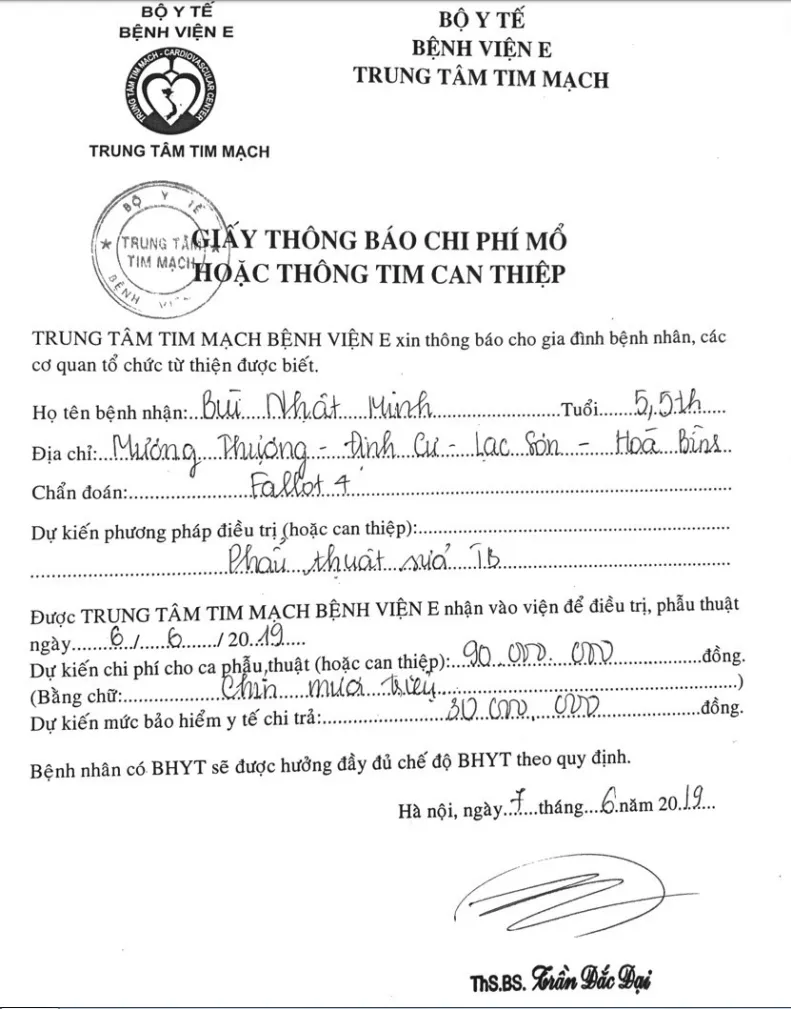 BỘ Y TẾ
BỆNH VIỆN E
TRUNG TÂM TIM MẠCH - CARDIOVASCULAR CENTER
TRUNG TÂM TIM MẠCH
BỘ Y TẾ
BỆNH VIỆN E
TRUNG TÂM TIM MẠCH
BỘ Y TẾ
TRUNG TÂM
TIM MẠCH
BỆNH VIỆN
GIẤY THÔNG BÁO CHI PHÍ MỔ
HOẶC THÔNG TIM CAN THIỆP
TRUNG TÂM TIM MẠCH BỆNH VIỆN E xin thông báo cho gia đình bệnh nhân, các
cơ quan tổ chức từ thiện được biết.
Họ tên bệnh nhận:..Bùi Nhật Minh..........Tuổi....5,5th.....
Địa chỉ:..Mường Thượng - Định Cư - Lạc Sơn - Hoà Bình..
Chẩn đoán:..........Fallot 4..........
Dự kiến phương pháp điều trị (hoặc can thiệp):..........
..........Phẫu thuật sửa TB..........
Được TRUNG TÂM TIM MẠCH BỆNH VIỆN E nhận vào viện để điều trị, phẫu thuật
ngày......6../....6...../ 20..19....
Dự kiến chi phí cho ca phẫu thuật (hoặc can thiệp):..90.000.000..........đồng.
(Bằng chữ:..........Chín mươi triệu..........)
Dự kiến mức bảo hiểm y tế chi trả:..........30.000.000..........đồng.
Bệnh nhân có BHYT sẽ được hưởng đầy đủ chế độ BHYT theo quy định.
Hà nội, ngày..7....tháng...6.năm 20.19...
ThS.BS. Trần Đắc Đại